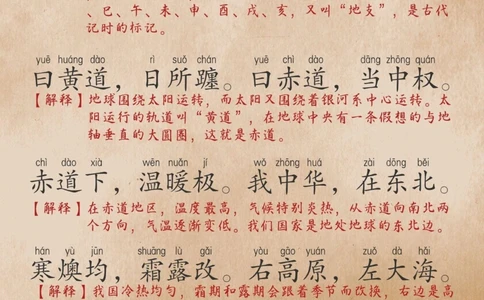 、巳、午、未、申、酉、戌、亥，又叫“地支”，是古代
记时的标记。
yuē huáng dào rì suǒ chán yuē chì dào dāng zhōng quán
曰黄道，日所躔。曰赤道，当中权。
【解释】地球围绕太阳运转，而太阳又围绕着银河系中心运转。太
阳运行的轨道叫“黄道”，在地球中央有一条假想的与地
轴垂直的大圆圈，这就是赤道。
chì dào xià wēn nuǎn jí wǒ zhōng huá zài dōng běi
赤道下，温暖极。我中华，在东北。
【解释】在赤道地区，温度最高，气候特别炎热，从赤道向南北两
个方向，气温逐渐变低。我们国家是地处地球的东北边。
hán yù jūn shuāng lù gǎi yòu gāo yuán zuǒ dà hǎi
寒燠均，霜露改。右高原，左大海。
【解释】我国冷热均匀，霜期和露期会跟着季节而改换，右边是高